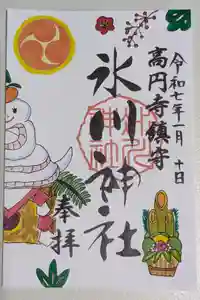 令和七年一月十日
高円寺鎮守
氷川神社
奉拝